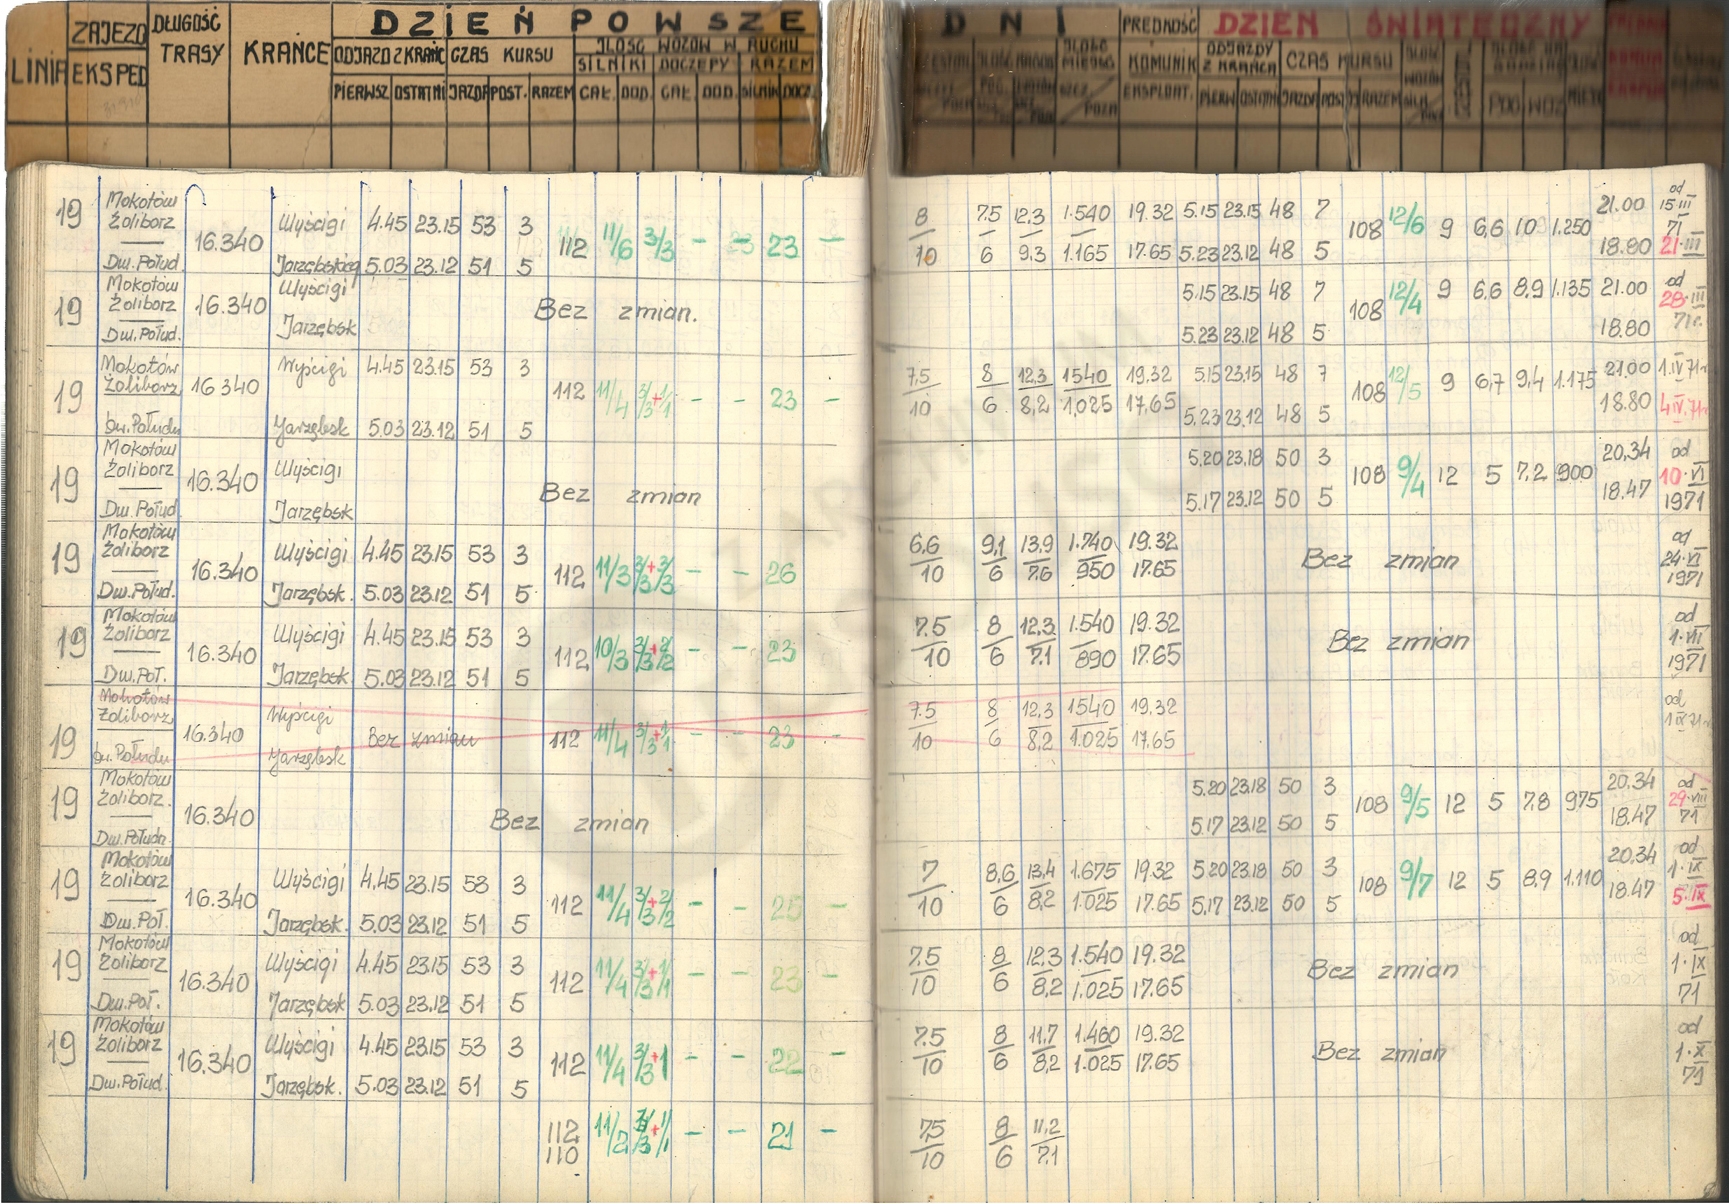 LINIA ZAJEZD EKSPED DŁUGOŚĆ TRASY KRAŃCE DZIEŃ POWSZE
ODJAZD Z KRAŃC CZAS KURSU ILOŚĆ WOZÓW W RUCHU
SILNIKI DOCZEPY RAZEM
PIERWSZ OSTATNI JAZDA POST. RAZEM CAŁ. DOD. CAŁ. DOD. SILNIK DOCZ.
DNI PREDKOŚĆ KOMUNIK EKSPLOAT. DZIEŃ ŚWIATECZNY
ODJAZDY Z KRAŃCA CZAS KURSU
PIERW OSTATN JAZDA POST RAZEM
19 Mokotów Żoliborz 16.340 Wyścigi 4.45 23.15 53 3 112 11/6 3/3 - - 23 - 8 7.5 12,3 1.540 19.32 5.15 23.15 48 7 108 12/6 9 6,6 10 1.250 21.00 od 15 III 71
Dw. Połud. 5.03 23.12 51 5 10 6 9,3 1.165 17.65 5.23 23.12 48 5 18.80 21.III
19 Mokotów Żoliborz 16.340 Wyścigi Bez zmian. 5.15 23.15 48 7 108 12/4 9 6,6 8,9 1.135 21.00 od 28.III
Dw. Połud. Jarzębsk 5.23 23.12 48 5 18.80 71r.
19 Mokotów Żoliborz 16.340 Wyścigi 4.45 23.15 53 3 112 11/4 3/3+1/1 - - 23 - 7,5 8 12,3 1540 19.32 5.15 23.15 48 7 108 12/5 9 6,7 9,4 1.175 21.00 1.IV 71r
Dw. Połudn Jarzębsk 5.03 23.12 51 5 10 6 8,2 1.025 17.65 5.23 23.12 48 5 18.80 4.IV.71r
19 Mokotów Żoliborz 16.340 Wyścigi Bez zmian 5.20 23.18 50 3 108 9/4 12 5 7.2 900 20,34 od 10.VI
Dw. Połud. Jarzębsk 5.17 23.12 50 5 18.47 1971
19 Mokotów Żoliborz 16.340 Wyścigi 4.45 23.15 53 3 112 11/3 3/3+3/3 - - 26 6,6 9,1 13,9 1.740 19.32 Bez zmian od 24.VI
Dw. Połud. Jarzębsk. 5.03 23.12 51 5 10 6 7.6 950 17.65 1971
19 Mokotów Żoliborz 16.340 Wyścigi 4.45 23.15 53 3 112 10/3 3/3+2/2 - - 23 7.5 8 12,3 1.540 19.32 Bez zmian od 1.VII
Dw. Poł. Jarzębsk. 5.03 23.12 51 5 10 6 7.1 890 17.65 1971
19 Mokotów Żoliborz 16.340 Wyścigi Bez zmian 112 11/4 3/3+1/1 - - 23 - 7.5 8 12,3 1540 19.32 od
Dw. Połudn Jarzębsk 10 6 8,2 1.025 17.65
19 Mokotów Żoliborz. 16.340 Bez zmian 5.20 23.18 50 3 108 9/5 12 5 7.8 975 20,34 od 29.VIII
Dw. Połudn. 5.17 23.12 50 5 18.47 71
19 Mokotów Żoliborz 16.340 Wyścigi 4.45 23.15 53 3 112 11/4 3/3+2/2 - - 25 - 7 8,6 13,4 1.675 19.32 5.20 23.18 50 3 108 9/7 12 5 8,9 1.110 20,34 od 1.IX
Dw. Poł. Jarzębsk. 5.03 23.12 51 5 10 6 8,2 1.025 17.65 5.17 23.12 50 5 18.47 5.IX
19 Mokotów Żoliborz 16.340 Wyścigi 4.45 23.15 53 3 112 11/4 3/3+1/1 - - 23 - 7.5 8 12,3 1.540 19.32 Bez zmian od 1.IX
Dw. Poł. Jarzębsk 5.03 23.12 51 5 10 6 8,2 1.025 17.65 71
19 Mokotów Żoliborz 16.340 Wyścigi 4.45 23.15 53 3 112 11/4 3/3+1 - - 22 - 7.5 8 11,7 1.460 19.32 Bez zmian od 1.X
Dw. Połud. Jarzębsk. 5.03 23.12 51 5 10 6 8,2 1.025 17.65 71
112 11/2 3/3+1/1 - - 21 - 7,5 8 11,2
110 10 6 7.1